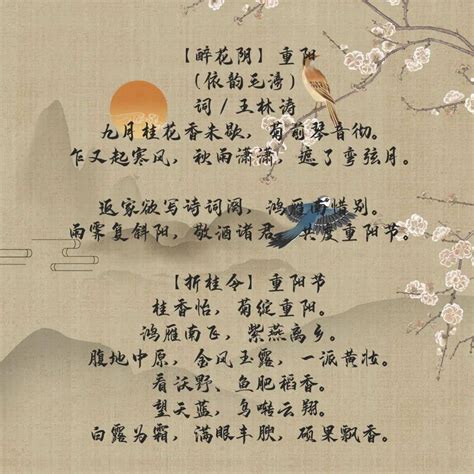 【醉花阴】重阳
（依韵毛滂）
词/王林涛
九月桂花香未歇，菊前琴音彻。
乍又起寒风，秋雨潇潇，遮了弯弦月。
返家欲写诗词阕，鸿雁南惜别。
雨霁复斜阳，敬酒诸君，共度重阳节。
【折桂令】重阳节
桂香怡，菊绽重阳。
鸿雁南飞，紫燕离乡。
腹地中原，金风玉露，一派黄妆。
看沃野、鱼肥稻香。
望天蓝，鸟啭云翔。
白露为霜，满眼丰腴，硕果飘香。